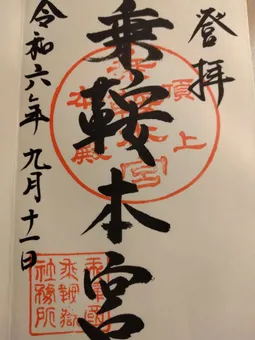 登拝
頂上
本殿
乗鞍本宮
令和六年九月十一日
乗鞍嶽
社務所